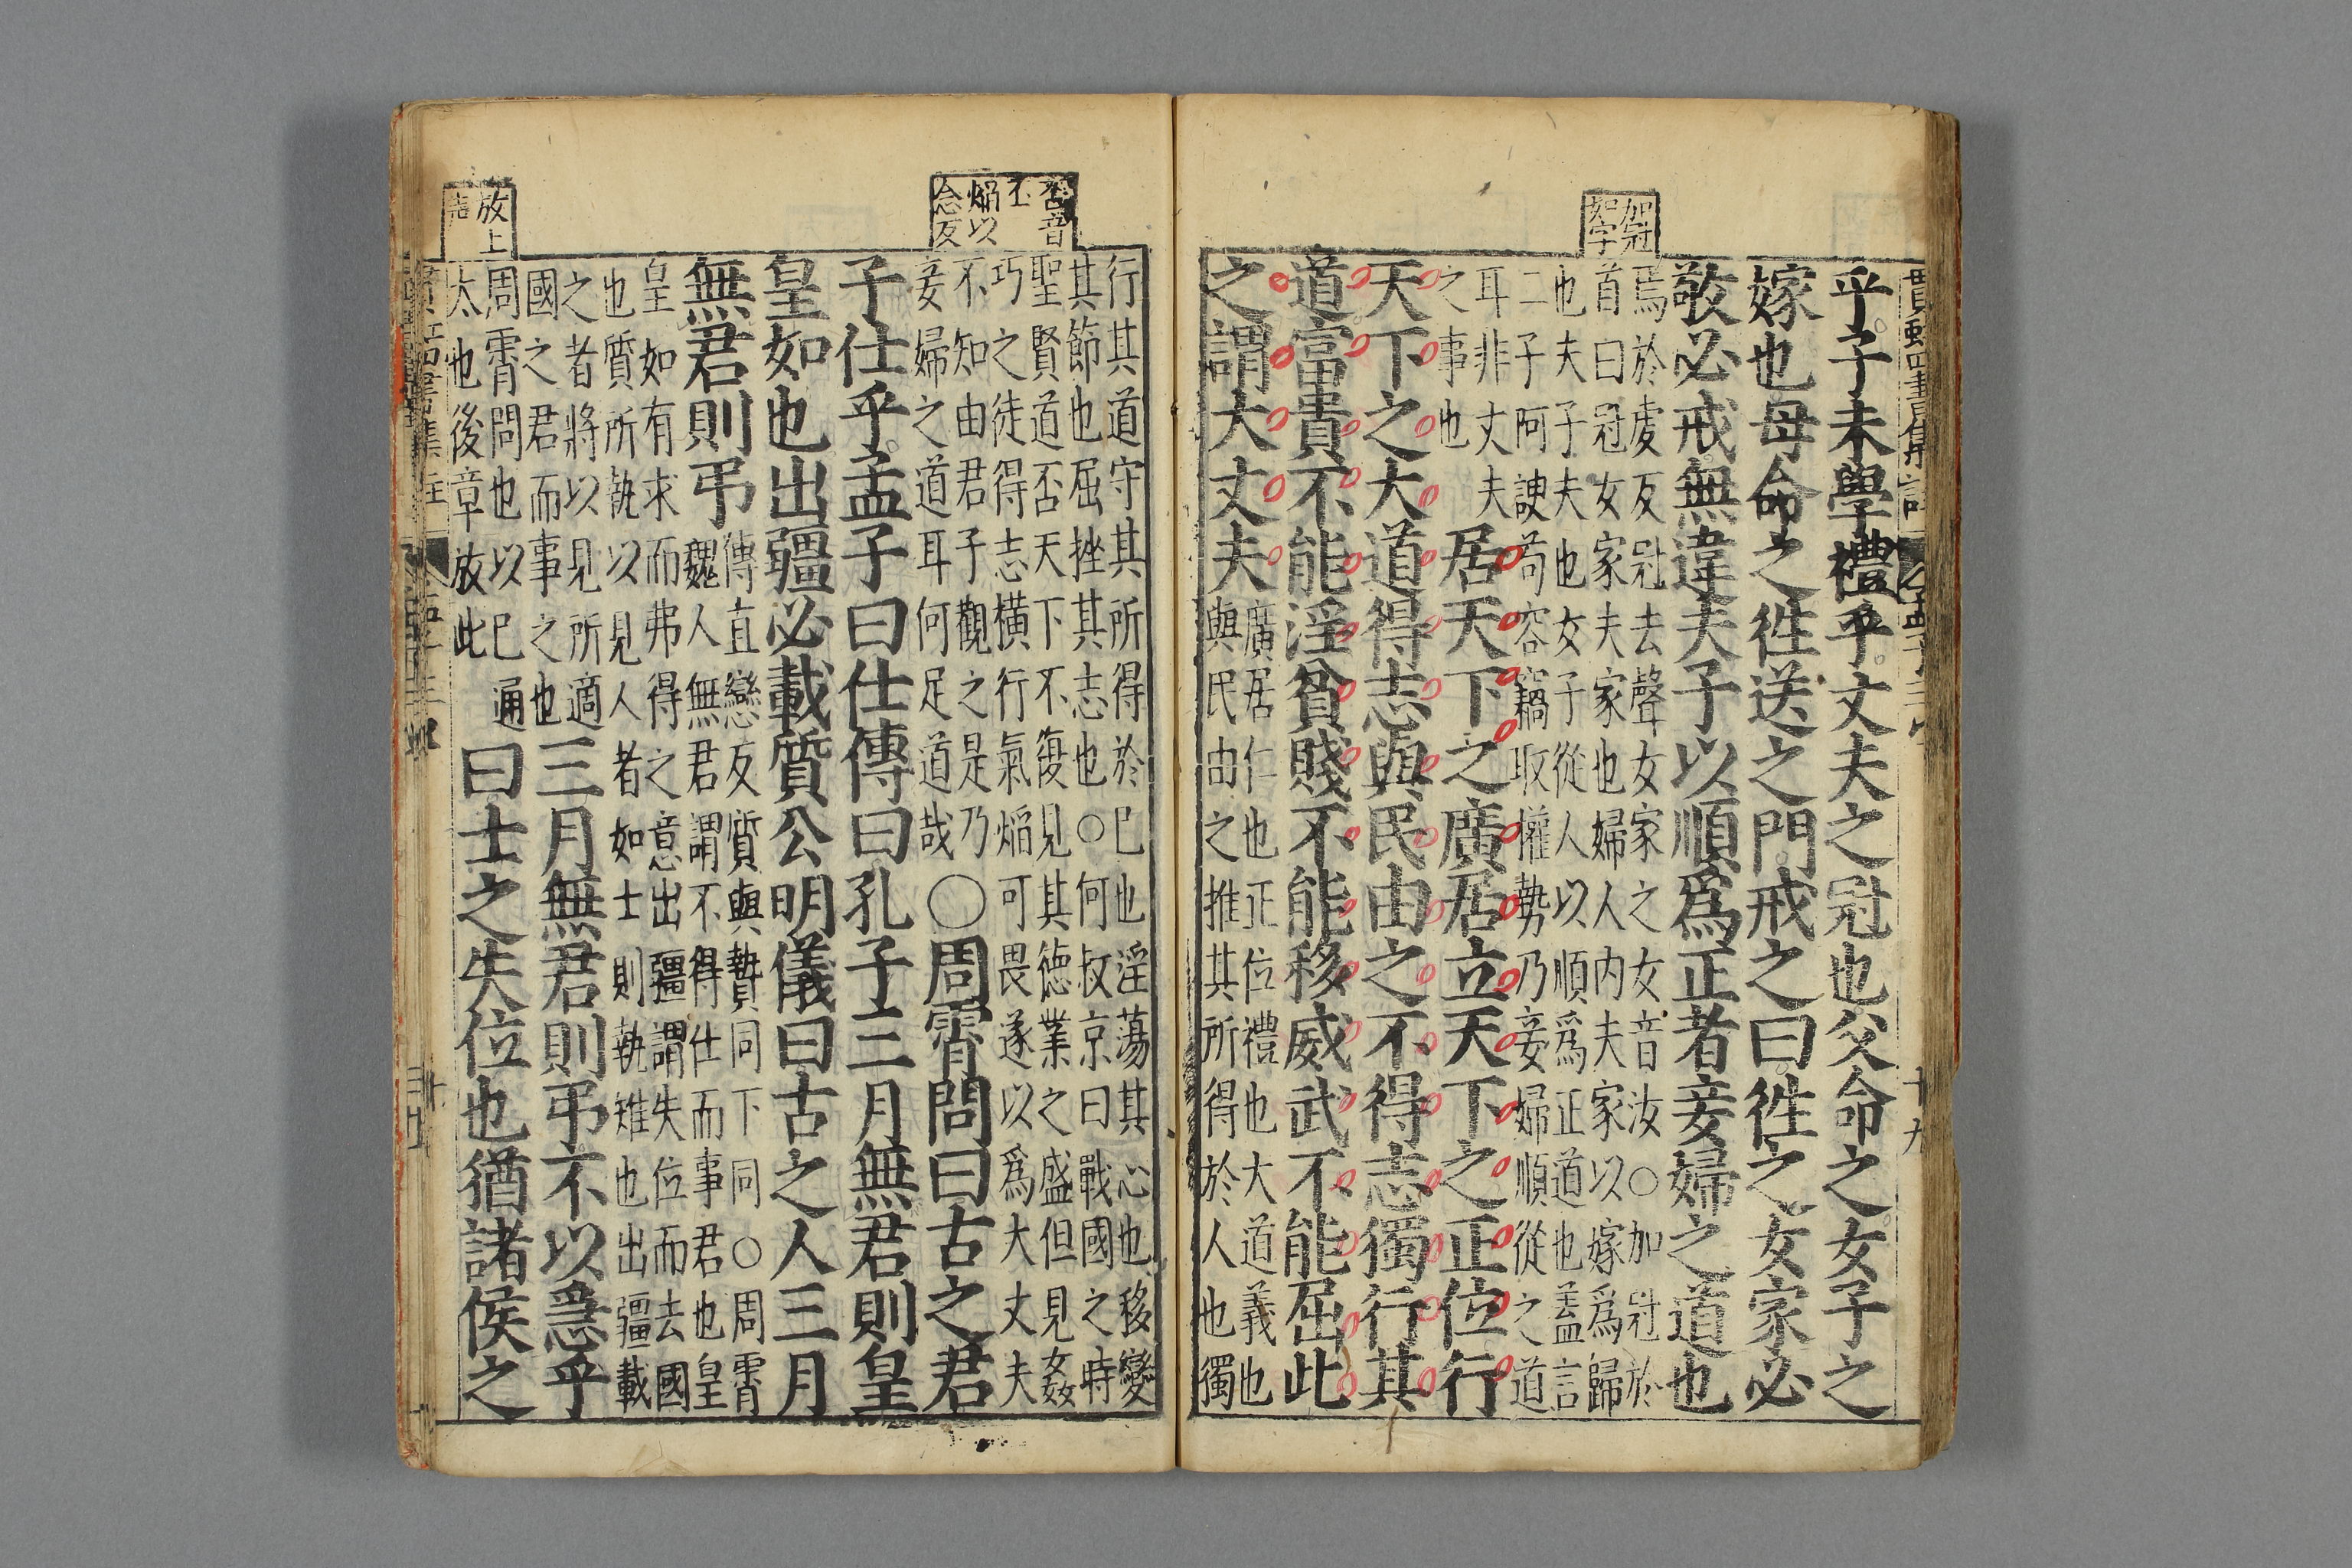 加冠
如字
乎子未學禮乎丈夫之冠也父命之女子之
嫁也母命之徃送之門戒之曰徃之女家必
敬必戒無違夫子以順爲正者妾婦之道也
焉於虔反冠去聲女家之女音汝○加冠於
首曰冠女家夫家也婦人内夫家以嫁爲歸
也夫子夫也女子從人以順爲正道也盖言
二子阿諛苟容竊取權勢乃妾婦順從之道
耳非丈夫
之事也
居天下之廣居立天下之正位行
天下之大道得志與民由之不得志獨行其
道富貴不能淫貧賤不能移威武不能屈此
之謂大丈夫
廣居仁也正位禮也大道義也
與民由之推其所得於人也獨
否音
丕
焰以
念反
行其道守其所得於已也淫蕩其心也移變
其節也屈挫其志也○何叔京曰戰國之時
聖賢道否天下不復見其德業之盛但見姦
巧之徒得志横行氣焰可畏遂以爲大丈夫
不知由君子觀之是乃
妾婦之道耳何足道哉
○周霄問曰古之君
子仕乎孟子曰仕傳曰孔子三月無君則皇
皇如也出疆必載質公明儀曰古之人三月
無君則弔
傳直戀反質與贄同下同○周霄
魏人無君謂不得仕而事君也皇
皇如有求而弗得之意出疆謂失位而去國
也質所執以見人者如士則執雉也出疆載
之者將以見所適
國之君而事之也
三月無君則弔不以急乎
周霄問也以已通
太也後章放此
曰士之失位也猶諸侯之
放上